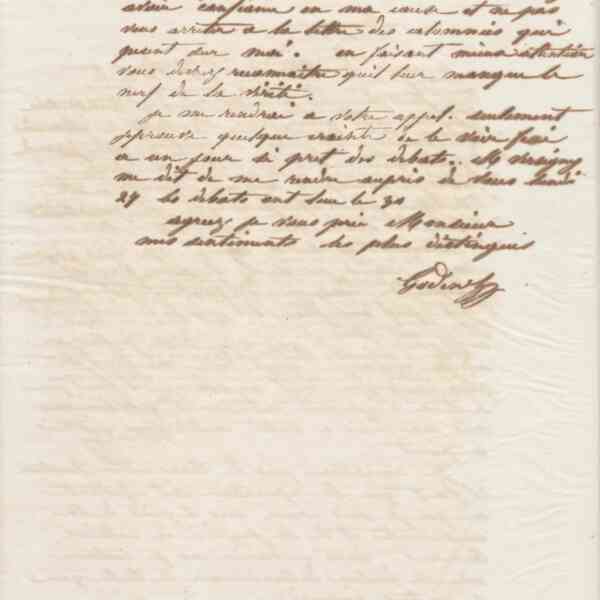 avoir confiance en ma cause et ne pas
vous arrêter à la lettre des calomnies qui
pèsent sur moi. en faisant mieux attention
vous devez reconnaître qu'il leur manque le
nerf de la vérité.
je me rendrai à votre appel. seulement
j'éprouve quelque crainte de le voir fixé
a un jour si pret des débats. M
me dit de me rendre auprès de vous lundi
27 les débats ont lieu le 30
agréez je vous prie Monsieur
mes sentiments les plus distingués
Godin